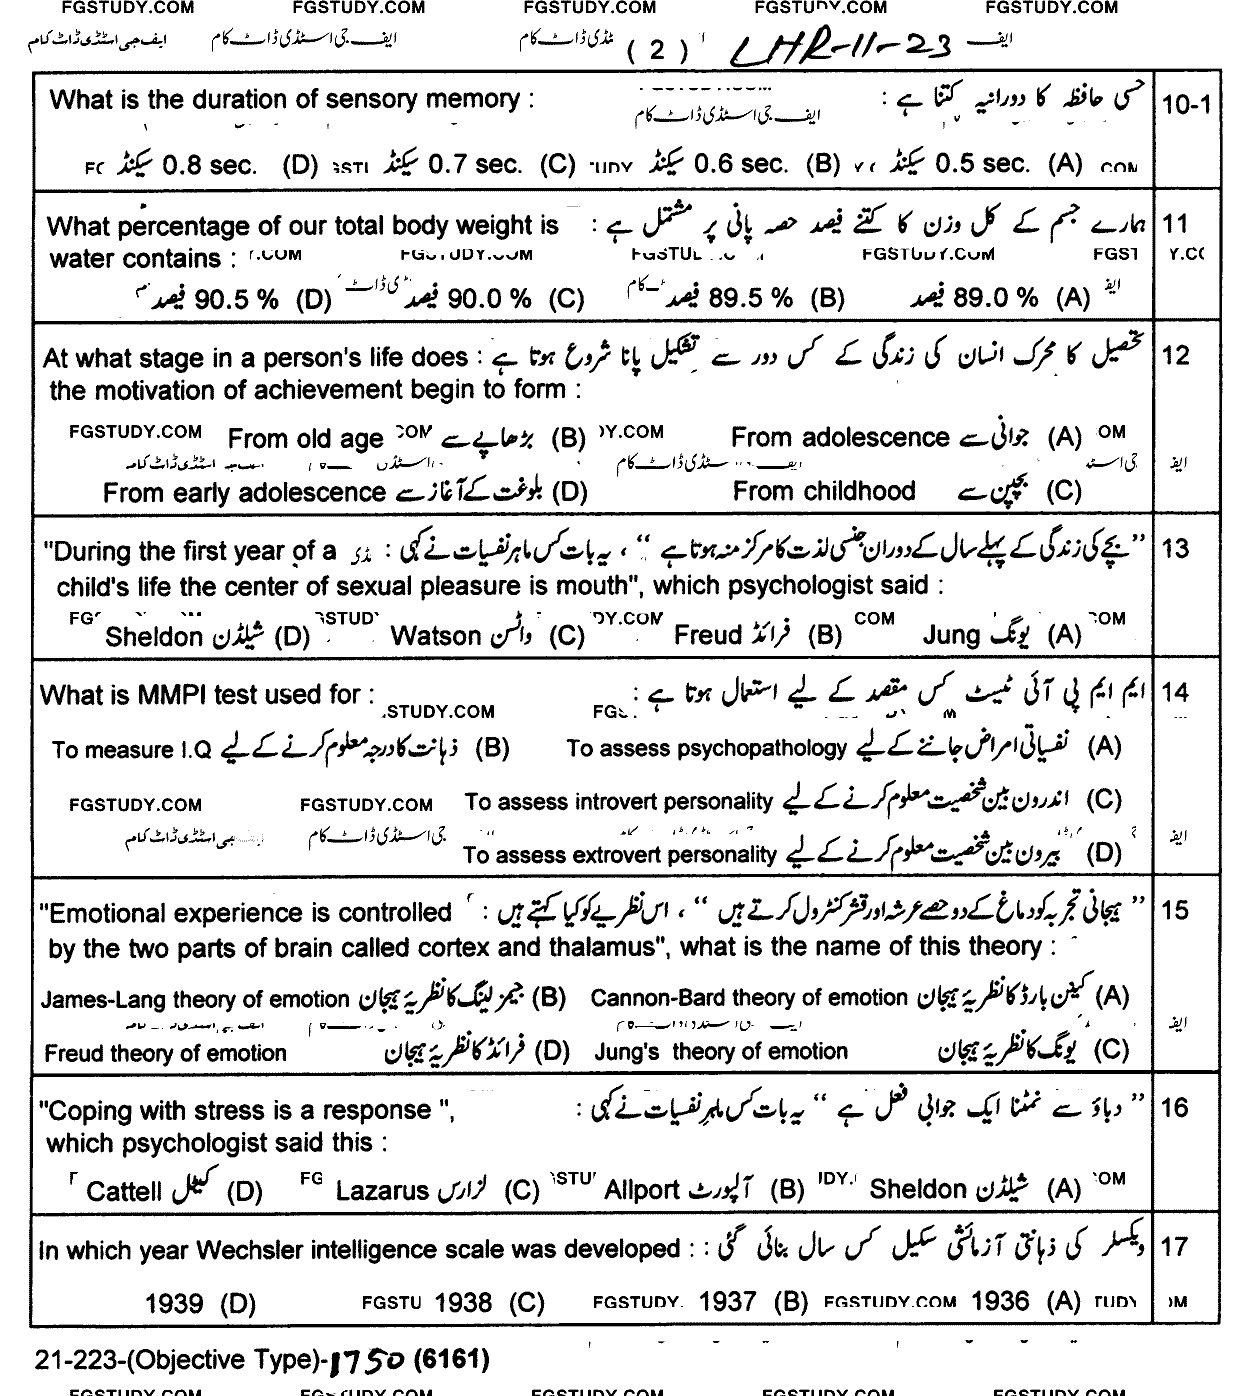 FGSTUDY.COM FGSTUDY.COM FGSTUDY.COM FGSTUDY.COM FGSTUDY.COM
ایف جی اسٹڈی ڈاٹ کام ایف جی اسٹڈی ڈاٹ کام ٹڈی ڈاٹ کام (2) LHR-11-23 ایف
What is the duration of sensory memory : حسی حافظہ کا دورانیہ کتنا ہے : 10-1
ایف جی اسٹڈی ڈاٹ کام
(A) 0.5 sec. سیکنڈ (B) 0.6 sec. سیکنڈ (C) 0.7 sec. سیکنڈ (D) 0.8 sec. سیکنڈ
What percentage of our total body weight is ہمارے جسم کے کل وزن کا کتنے فیصد حصہ پانی پر مشتمل ہے : 11
water contains :
(A) 89.0 % فیصد (B) 89.5 % فیصد (C) 90.0 % فیصد (D) 90.5 % فیصد
At what stage in a person's life does تحصیل کا محرک انسان کی زندگی کے کس دور سے تشکیل پانا شروع ہوتا ہے : 12
the motivation of achievement begin to form :
(A) From adolescence جوانی سے (B) From old age بڑھاپے سے FGSTUDY.COM
(C) From childhood بچپن سے (D) From early adolescence بلوغت کے آغاز سے
"During the first year of a ’’بچے کی زندگی کے پہلے سال کے دوران جنسی لذت کا مرکز منہ ہوتا ہے‘‘، یہ بات کس ماہر نفسیات نے کہی : 13
child's life the center of sexual pleasure is mouth", which psychologist said :
(A) Jung یونگ (B) Freud فرائڈ (C) Watson واٹسن (D) Sheldon شیلڈن
What is MMPI test used for : ایم ایم پی آئی ٹیسٹ کس مقصد کے لیے استعمال ہوتا ہے : 14
(A) To assess psychopathology نفسیاتی امراض جاننے کے لیے (B) To measure I.Q ذہانت کا درجہ معلوم کرنے کے لیے
(C) To assess introvert personality اندرون بین شخصیت معلوم کرنے کے لیے FGSTUDY.COM FGSTUDY.COM
(D) To assess extrovert personality بیرون بین شخصیت معلوم کرنے کے لیے
"Emotional experience is controlled ’’ہیجانی تجربہ کو دماغ کے دو حصے عرشہ اور قشر کنٹرول کرتے ہیں‘‘، اس نظریے کو کیا کہتے ہیں : 15
by the two parts of brain called cortex and thalamus", what is the name of this theory :
(A) Cannon-Bard theory of emotion کینن بارڈ کا نظریۂ ہیجان (B) James-Lang theory of emotion جیمز لینگ کا نظریۂ ہیجان
(C) Jung's theory of emotion یونگ کا نظریۂ ہیجان (D) Freud theory of emotion فرائڈ کا نظریۂ ہیجان
"Coping with stress is a response ", ’’دباؤ سے نمٹنا ایک جوابی فعل ہے‘‘ یہ بات کس ماہر نفسیات نے کہی : 16
which psychologist said this :
(A) Sheldon شیلڈن (B) Allport آلپورٹ (C) Lazarus لزارس (D) Cattell کیٹل
In which year Wechsler intelligence scale was developed : ویکسلر کی ذہانتی آزمائشی سکیل کس سال بنائی گئی : 17
(A) 1936 (B) 1937 (C) 1938 (D) 1939
21-223-(Objective Type)-1750 (6161)
FGSTUDY.COM FGSTUDY.COM FGSTUDY.COM FGSTUDY.COM FGSTUDY.COM